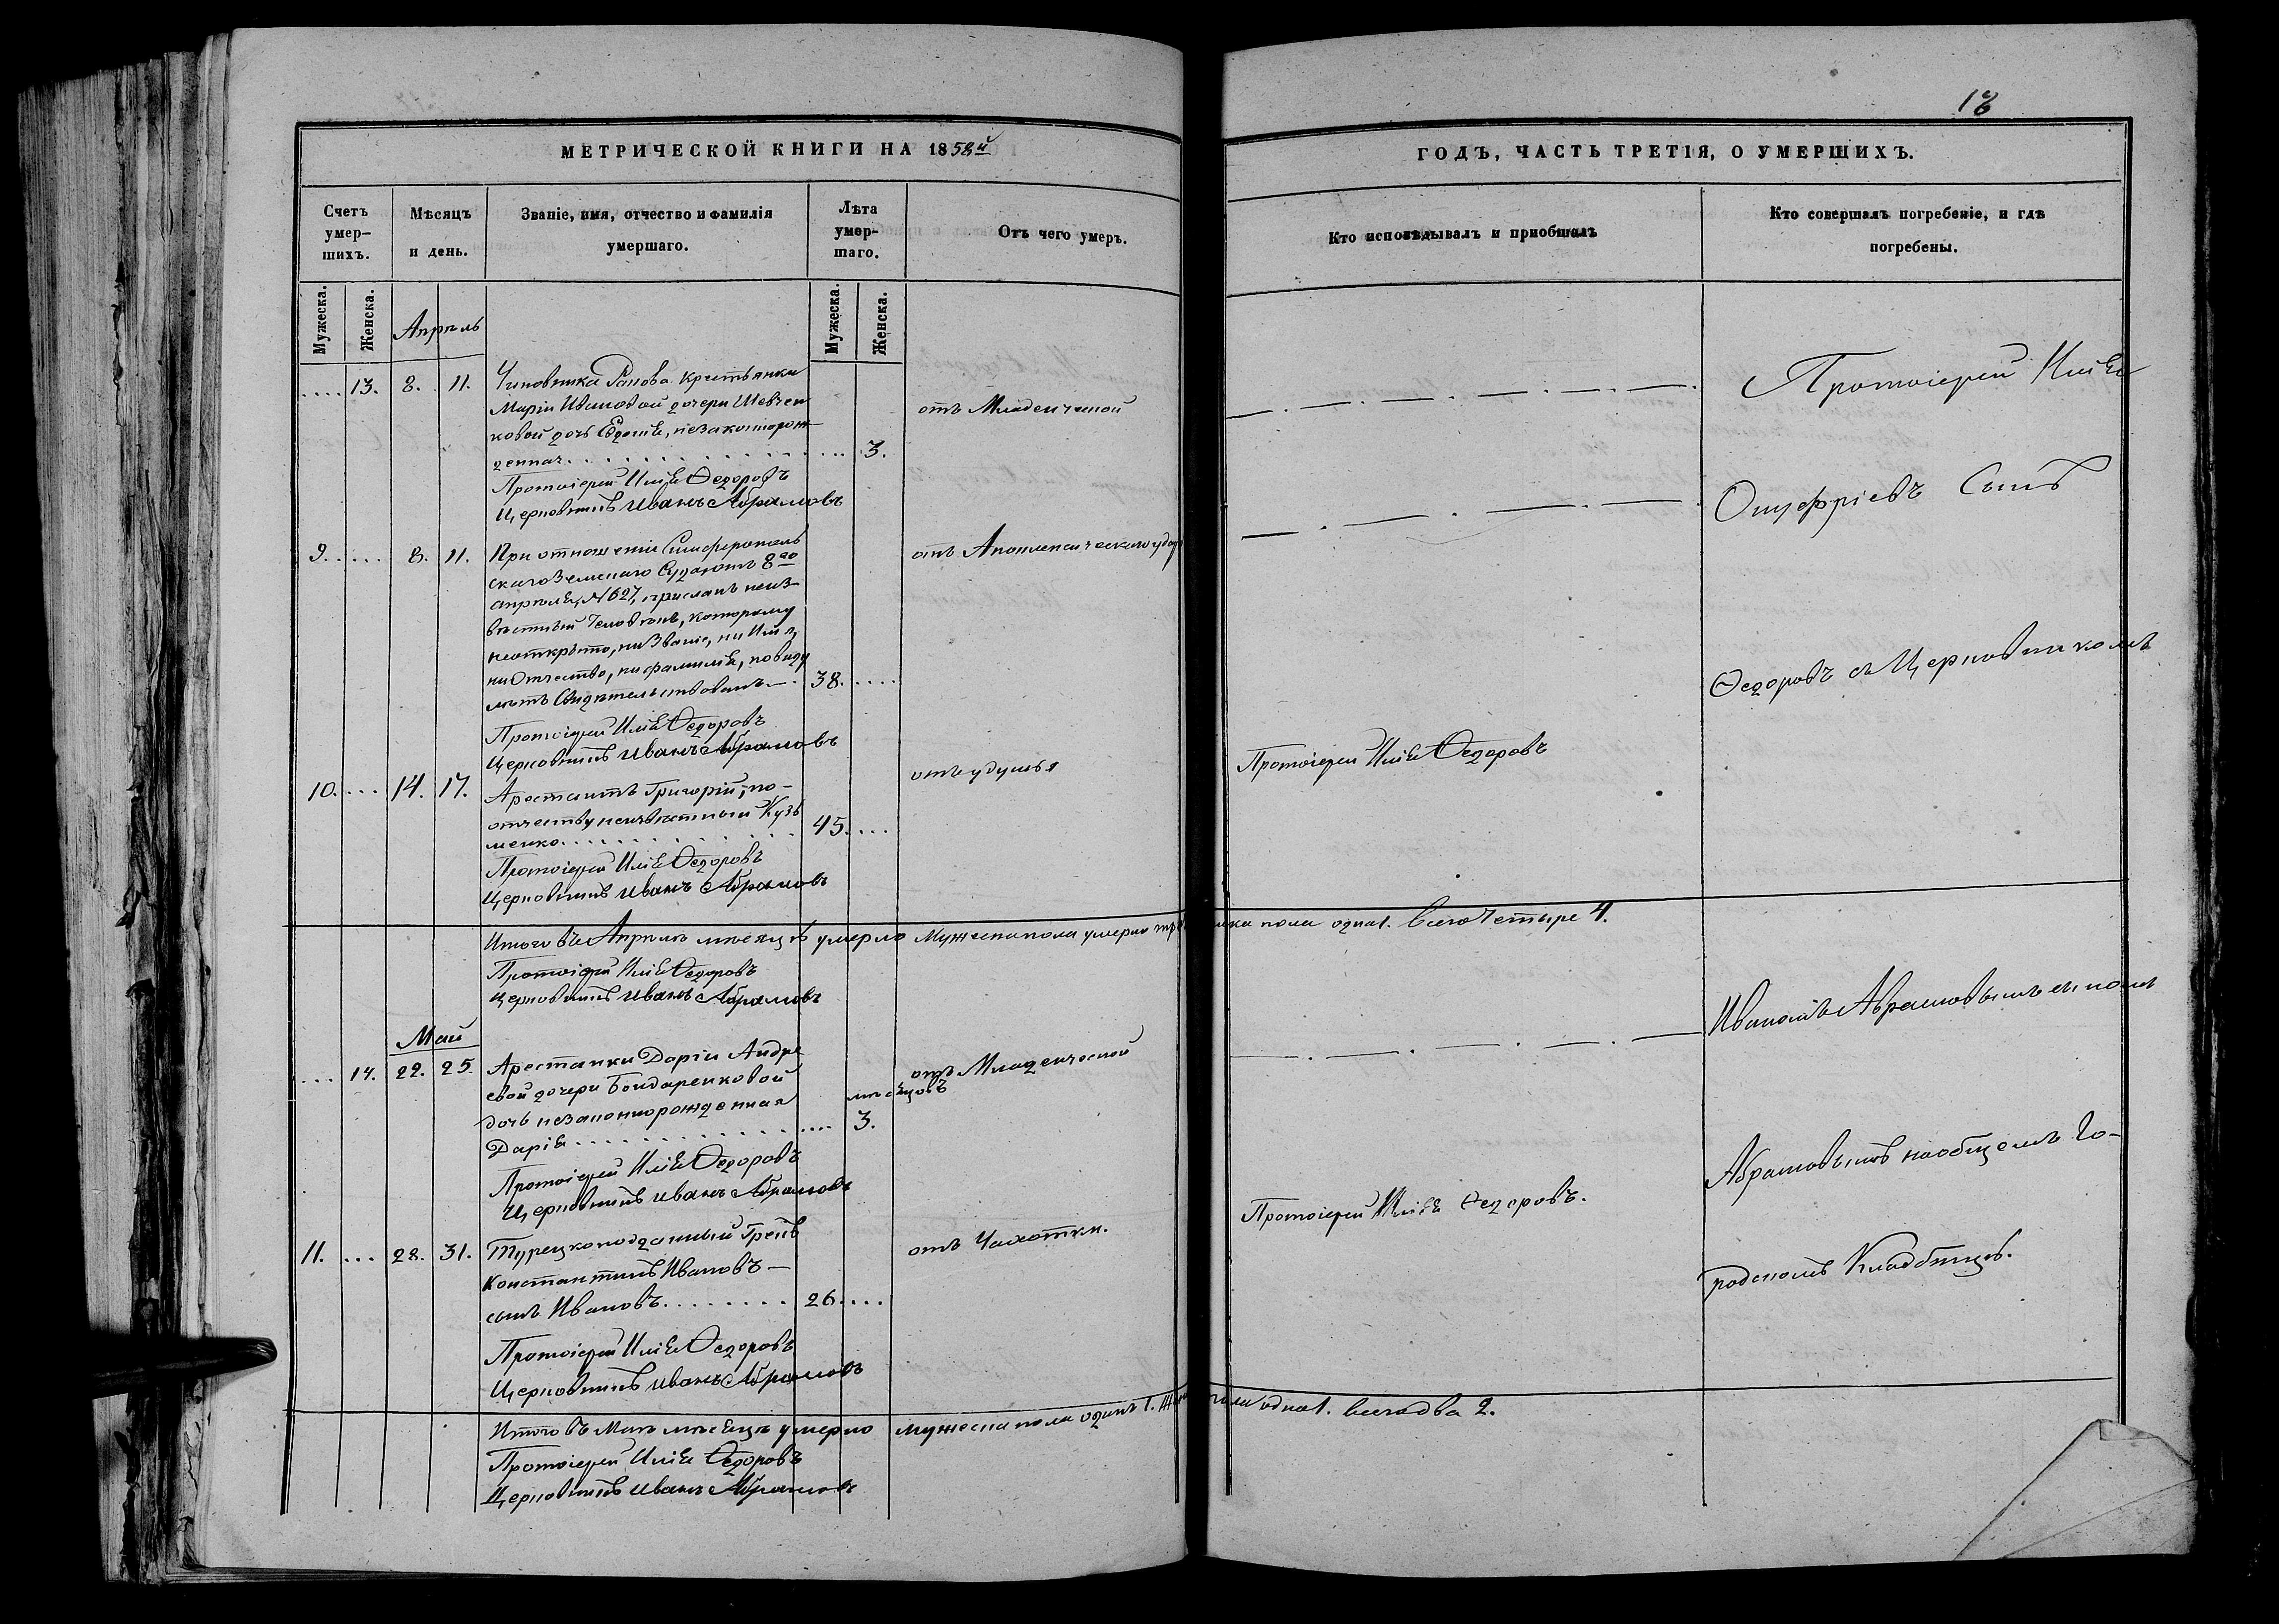 18
МЕТРИЧЕСКОЙ КНИГИ НА 1858й
ГОДЪ, ЧАСТЬ ТРЕТІЯ, О УМЕРШИХЪ.
Счетъ умер-шихъ.
Мѣсяцъ и день.
Званіе, имя, отчество и фамилія умершаго.
Лѣта умер-шаго.
Отъ чего умеръ.
Кто исповѣдывалъ и пріобщалъ
Кто совершалъ погребеніе, и гдѣ погребены.
Мужеска.
Женска.
Апрѣль
Мужеска.
Женска.
.... 13. 8. 11. Чиновника Ранова Крестьянки
Маріи Ивановой дочери Шевчен
ковой дочь Евдокія, незаконорож-
денная .... 3.
отъ Младенческой
Протоіерей Илія Ѳедоровъ
Церковникъ Иванъ Абрамовъ
9. .... 8. 11. При отношеніи Симферополь
скаго Земскаго Суда отъ 8го
апрѣля, №627, присланъ неиз-
вѣстный человѣкъ, которому
неоткрыто, ни Званіе, ни Имя,
ни Отчество, ни фамилія, по виду
лѣтъ Свидѣтельствованъ. 38. ....
отъ Апоплексическаго удара
Протоіерей Илія Ѳедоровъ
Церковникъ Иванъ Абрамовъ
10. ... 14. 17. Арестантъ Григорій, по-
отчеству неизвѣстный Кузь
менко .... 45. ...
отъ удушья
Протоіерей Илія Ѳедоровъ
Протоіерей Илія Ѳедоровъ
Церковникъ Иванъ Абрамовъ
Итого въ Апрѣлѣ мѣсяцѣ умерло Мужеска пола умерло
пола одна 1. Всего Четыре 4.
Протоіерей Илія Ѳедоровъ
Церковникъ Иванъ Абрамовъ
Май
.... 14. 22. 25. Арестанки Даріи Андре
евой дочери Бондаренковой
дочь незаконнорожденная
Дарія .... мѣсяцовъ 3.
отъ Младенческой
Протоіерей Илія Ѳедоровъ
Церковникъ Иванъ Абрамовъ
11. ... 28. 31. Турецкоподданный Грекъ
Константинъ Ивановъ —
сынъ Ивановъ .... 26. ....
отъ Чахотки.
Протоіерей Илія Ѳедоровъ.
Протоіерей Илія Ѳедоровъ
Церковникъ Иванъ Абрамовъ
Итого въ Маѣ мѣсяцѣ умерло мужеска пола одинъ 1.
пола одна 1. всего два 2.
Протоіерей Илія Ѳедоровъ
Церковникъ Иванъ Абрамовъ
Протоіерей Илія
Онуфріевъ Сынъ
Ѳедоровъ съ Церковникомъ
Иваномъ Абрамовымъ
Абрамовымъ на общемъ Го-
родскомъ Кладбищѣ.